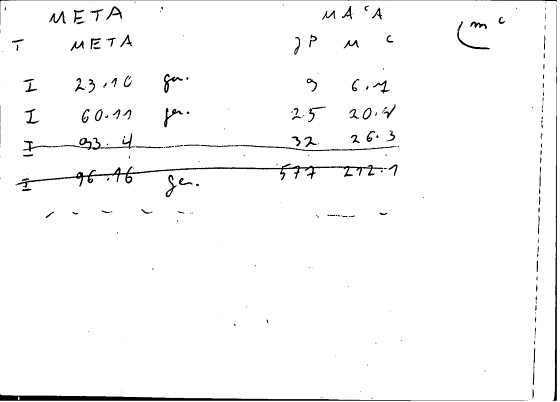 META MACA
T META JP M C mc
I 23.10 gen. 9 6.1
I 60.11 gen. 25 20.4
I 93.4 32 26.3
I 96.16 gen. 577 212.1